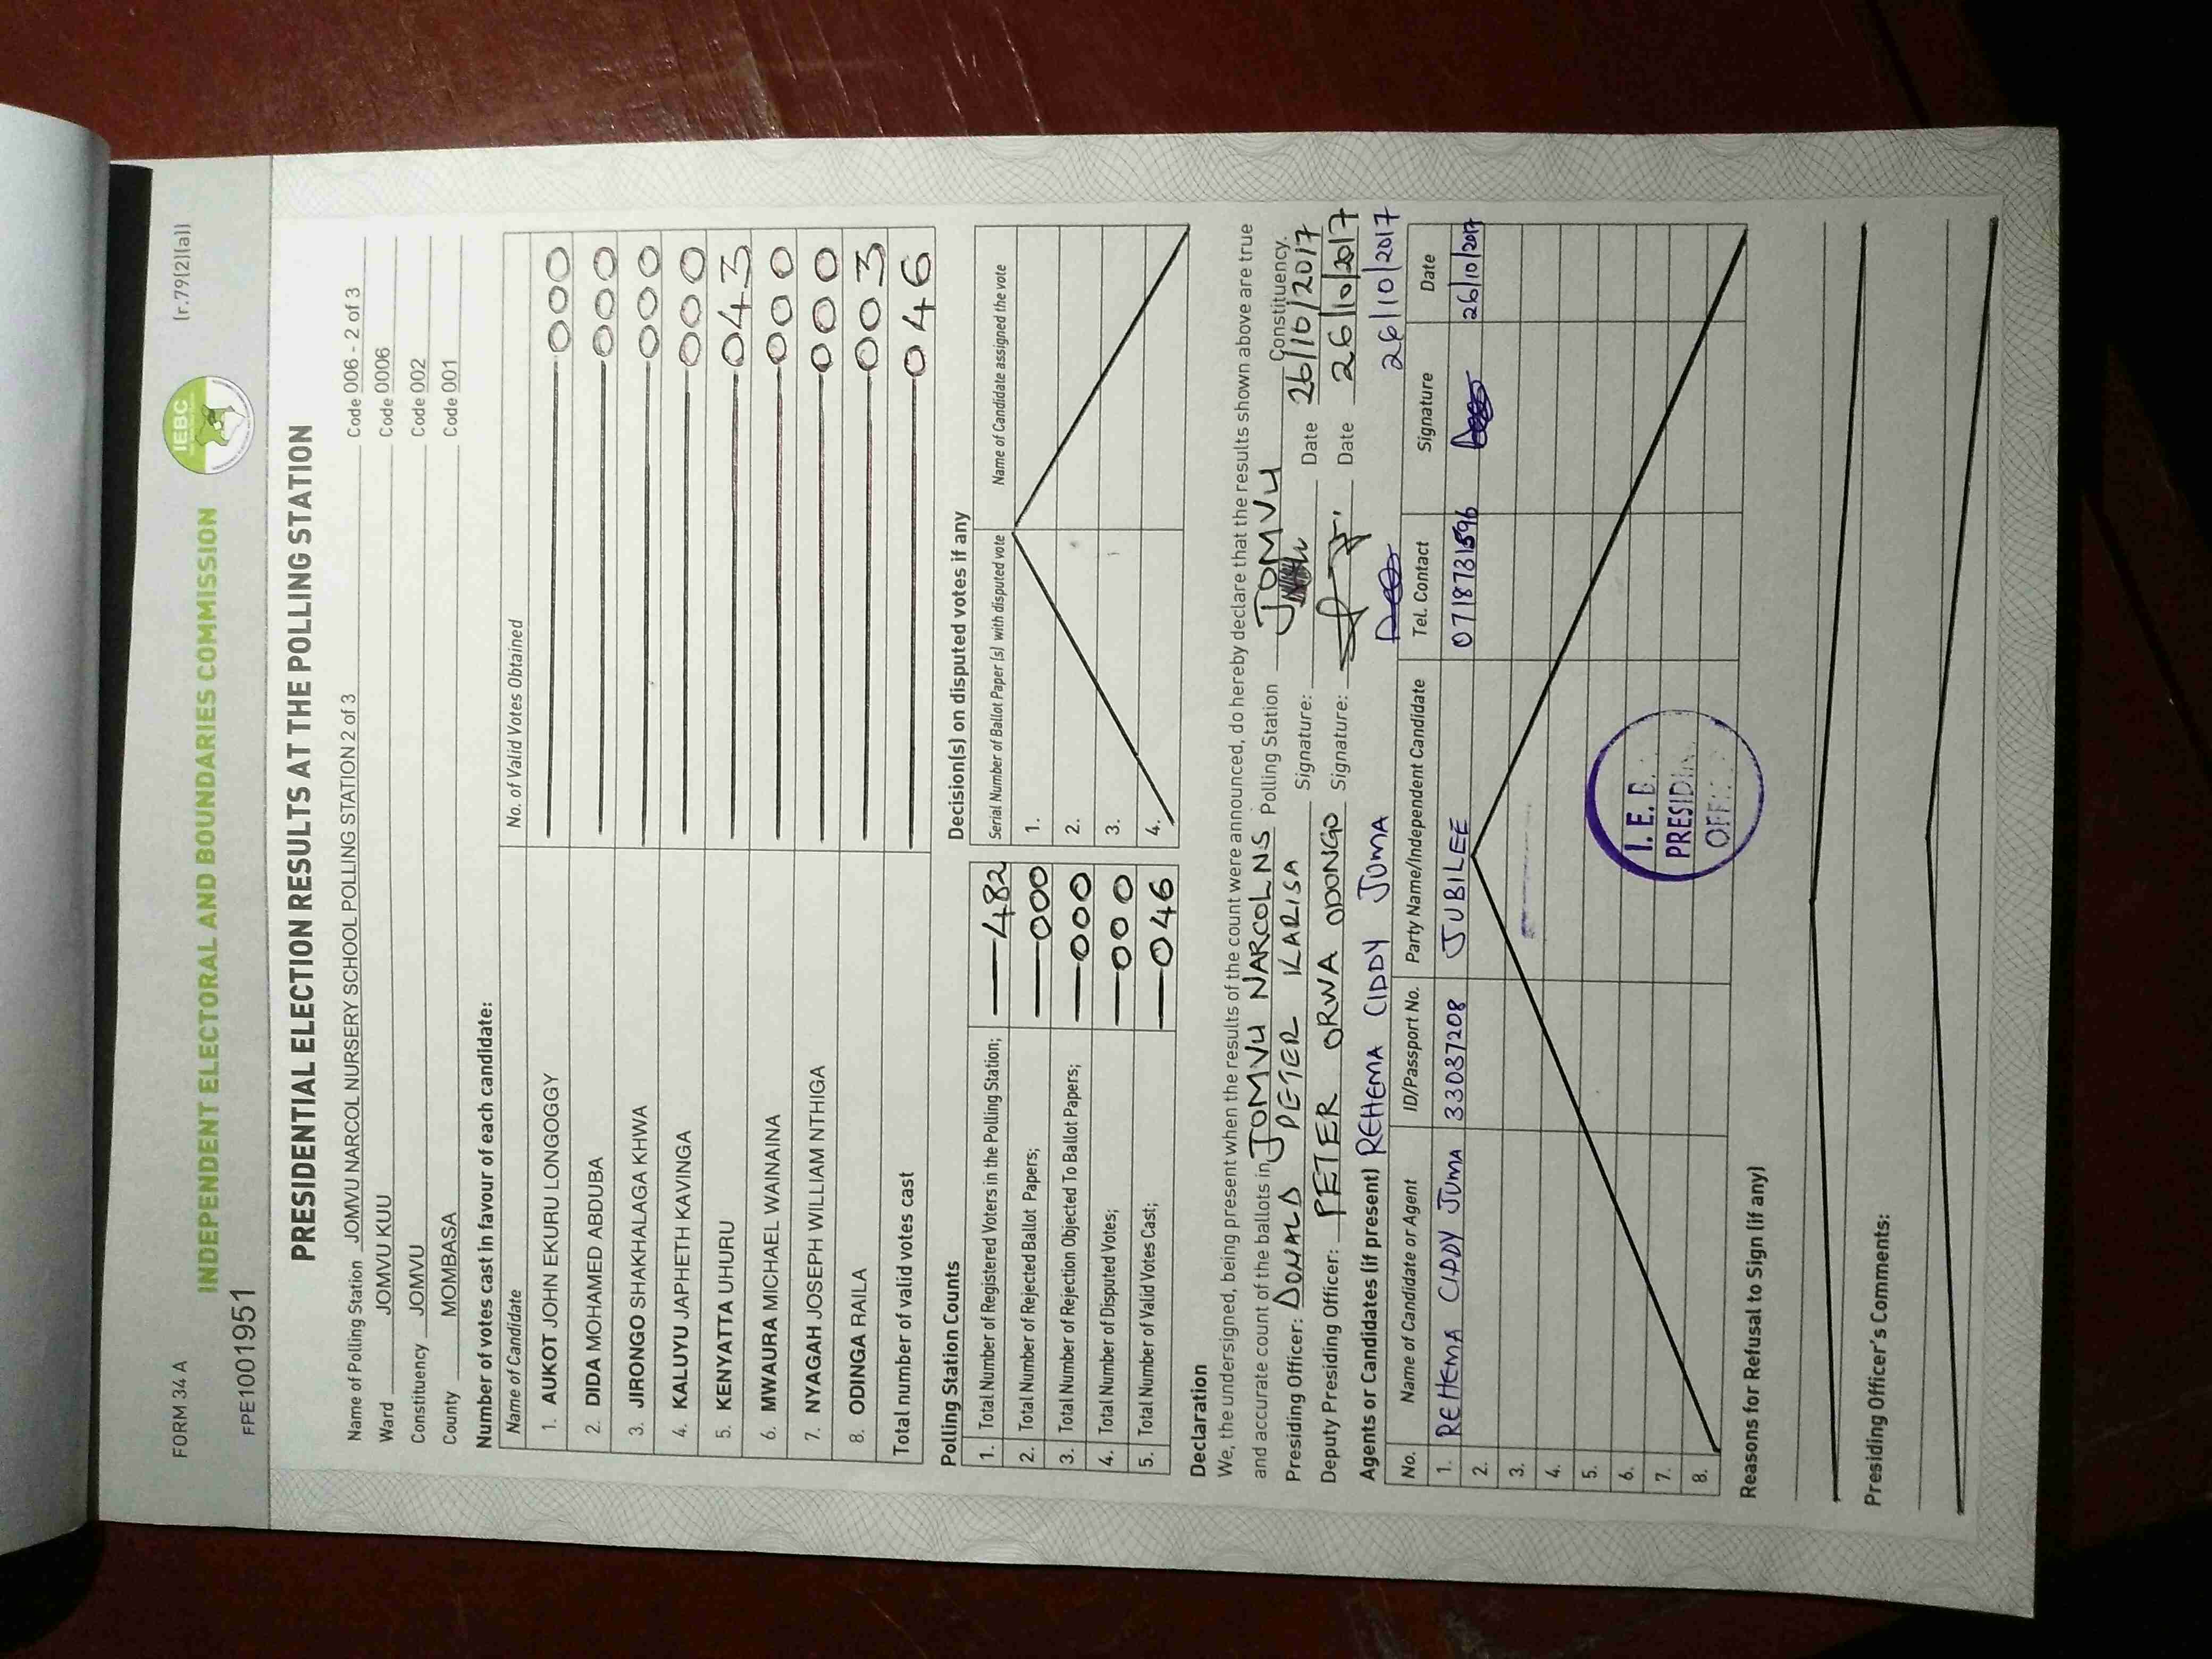 FORM 34 A
(r.79(2)(a))
INDEPENDENT ELECTORAL AND BOUNDARIES COMMISSION
IEBC
FPE1001951
PRESIDENTIAL ELECTION RESULTS AT THE POLLING STATION
Name of Polling Station JOMVU NARCOL NURSERY SCHOOL POLLING STATION 2 of 3 Code 006 - 2 of 3
Ward JOMVU KUU Code 0006
Constituency JOMVU Code 002
County MOMBASA Code 001
Number of votes cast in favour of each candidate:
Name of Candidate No. of Valid Votes Obtained
1. AUKOT JOHN EKURU LONGOGGY 000
2. DIDA MOHAMED ABDUBA 000
3. JIRONGO SHAKHALAGA KHWA 000
4. KALUYU JAPHETH KAVINGA 000
5. KENYATTA UHURU 043
6. MWAURA MICHAEL WAINAINA 000
7. NYAGAH JOSEPH WILLIAM NTHIGA 000
8. ODINGA RAILA 003
Total number of valid votes cast 046
Polling Station Counts
1. Total Number of Registered Voters in the Polling Station; 482
2. Total Number of Rejected Ballot Papers; 000
3. Total Number of Rejection Objected To Ballot Papers; 000
4. Total Number of Disputed Votes; 000
5. Total Number of Valid Votes Cast; 046
Decision(s) on disputed votes if any
Serial Number of Ballot Paper (s) with disputed vote Name of Candidate assigned the vote
1.
2.
3.
4.
Declaration
We, the undersigned, being present when the results of the count were announced, do hereby declare that the results shown above are true
and accurate count of the ballots in JOMVU NARCOLNS Polling Station JOMVU Constituency.
Presiding Officer: DONALD PETER KARISA Signature: Date 26/10/2017
Deputy Presiding Officer: PETER ORWA ODONGO Signature: Date 26/10/2017
Agents or Candidates (if present) REHEMA CIDDY JUMA 26/10/2017
No. Name of Candidate or Agent ID/Passport No. Party Name/Independent Candidate Tel. Contact Signature Date
1. REHEMA CIDDY JUMA 33037208 JUBILEE 0718731596 26/10/2017
2.
3.
4.
5.
6.
7.
8.
I.E.B.
PRESIDIN
OFFI
Reasons for Refusal to Sign (if any)
Presiding Officer's Comments: